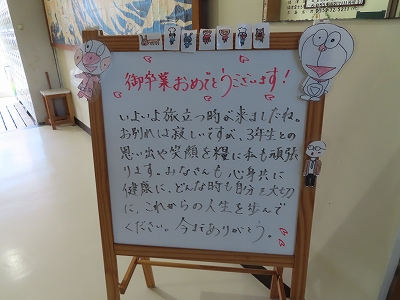 御卒業おめでとうございます！
いよいよ旅立つ時が来ましたね。
お別れは寂しいですが、3年生との
思い出や笑顔を糧に私も頑張
ります。みなさんも心身共に
健康に、どんな時も自分を大切
に、これからの人生を歩んで
ください。今までありがとう。